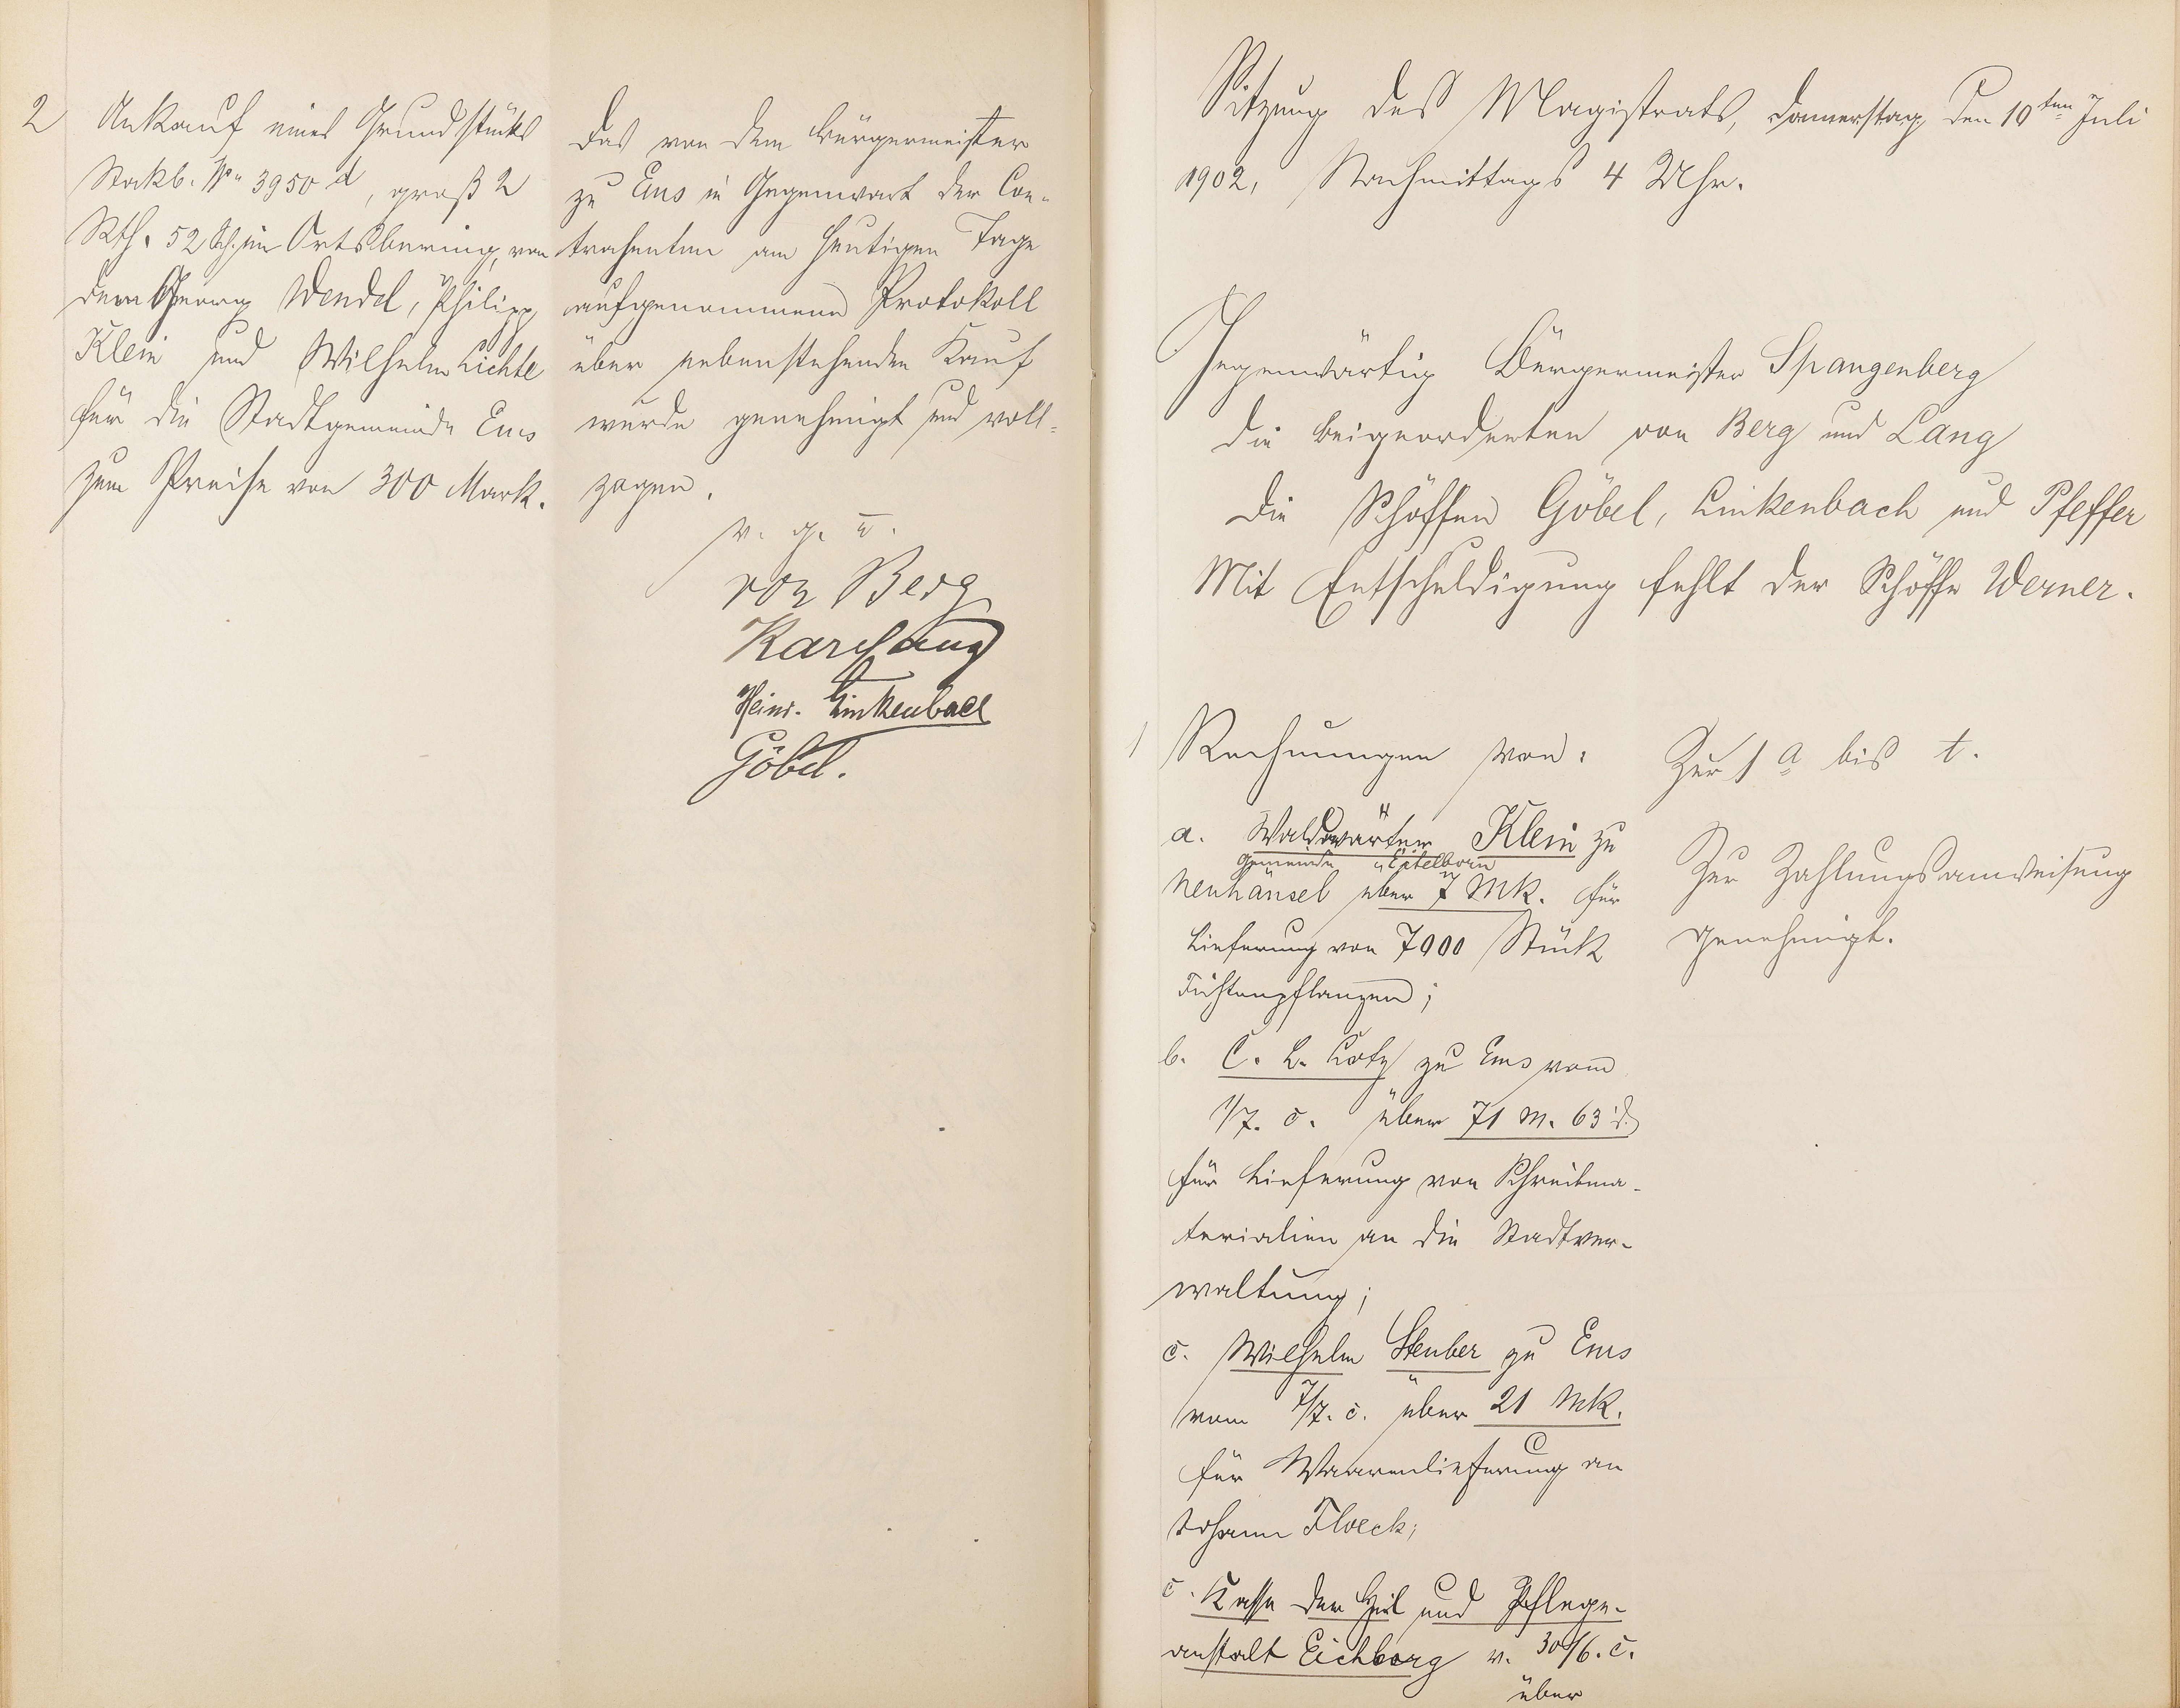 2 Ankauf eines Grundstücks
Stockb. No 3950 d, groß 2
Rth. 52 Sch. im Ortsbering, von
dem Georg Wendel, Philipp
Klein und Wilhelm Lichte
für die Stadtgemeinde Ems
zum Preise von 300 Mark.
Das von dem Bürgermeister
zu Ems in Gegenwart der Con-
trahenten am heutigen Tage
aufgenommene Protokoll
über nebenstehenden Kauf
wurde genehmigt und voll-
zogen.
v. g. u.
von Berg
Karl Lang
Heinr. Linkenbach
Göbel.
Sitzung des Magistrats, Donnerstag, den 10ten Juli
1902, Nachmittags 4 Uhr.
Gegenwärtig Bürgermeister Spangenberg
die Beigeordneten von Berg und Lang
die Schöffen Göbel, Linkenbach und Pfeffer
Mit Entschuldigung fehlt der Schöffe Werner.
1 Rechnungen von:
a. Waldwärter Klein zu
Gemeinde Eitelborn
Neuhäusel über 7 Mk. für
Lieferung von 7000 Stück
Fichtenpflanzen;
b. C. L. Lotz zu Ems vom
1/7. c. über 71 M. 63 d
für Lieferung von Schreibma-
terialien an die Stadtver-
waltung;
c. Wilhelm Steuber zu Ems
vom 7/7. c. über 21 Mk.
für Waarenlieferung an
Johann Floeck;
c. Kasse der Heil und Pflege-
anstalt Eichberg v. 30/6. c.
über
Zur 1 a bis t.
Zur Zahlungsanweisung
genehmigt.